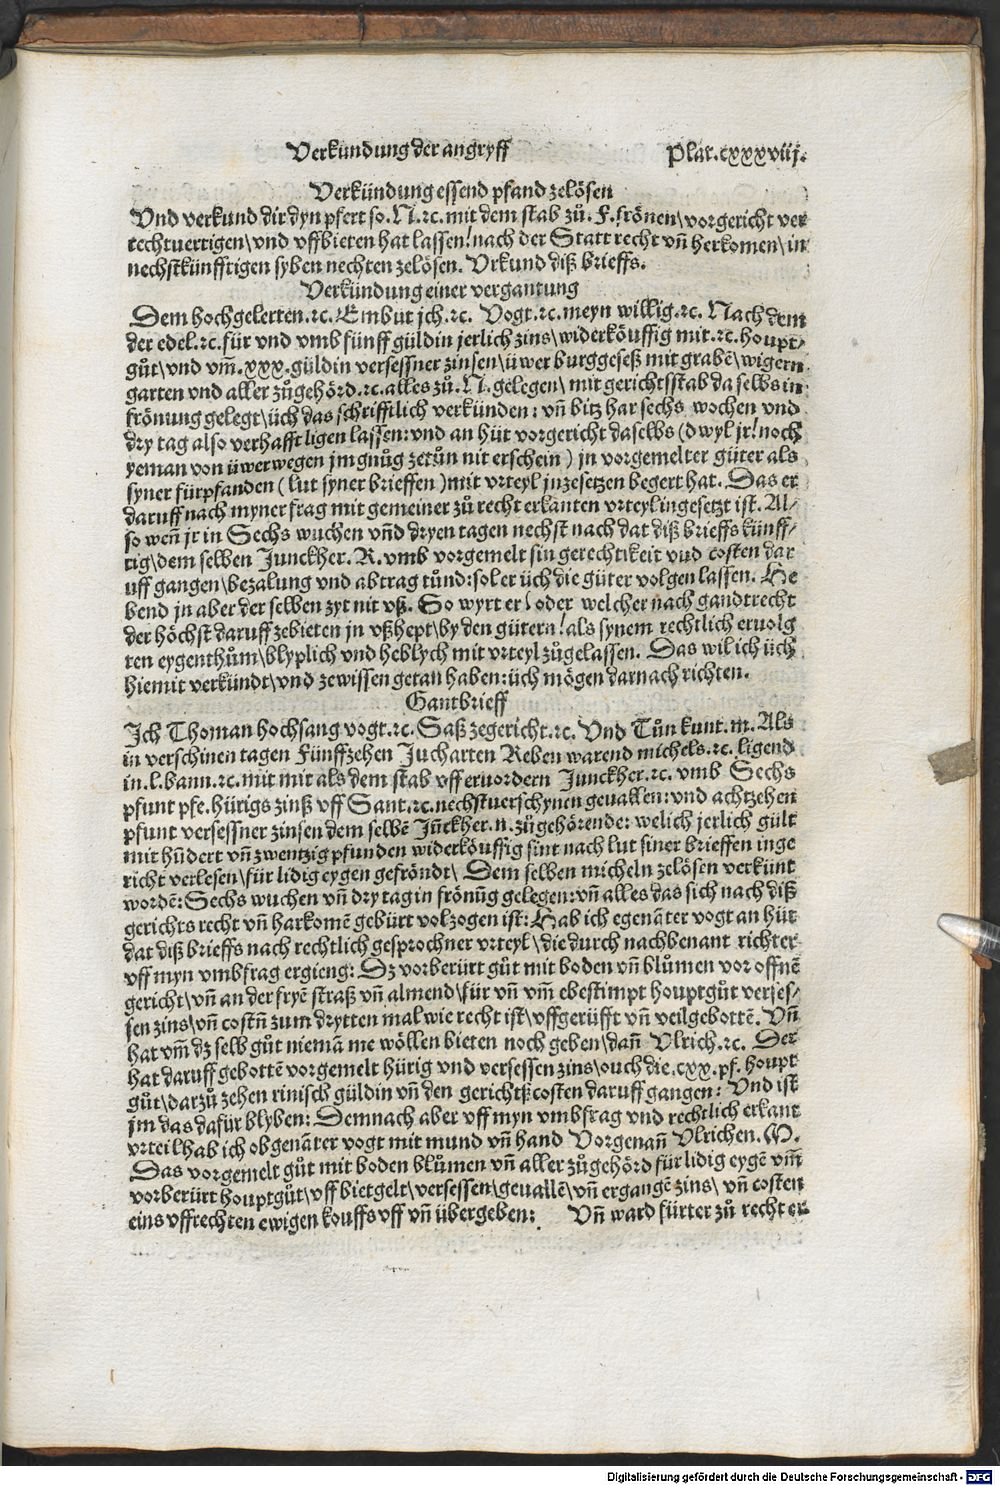 Verkündung der angryff Plat. cxxxviij.
Verkündung essend pfand zelösen
Vnd verkund dir dyn pfert so. N. ꝛc. mit dem stab zů. F. frönen\ vor gericht ver
rechtuertigen\ vnd vffbieten hat lassen! nach der Statt recht vn̄ herkomen\ in
nechstkünfftigen syben nechten zelösen. Vrkund diß brieffs.
Verkündung einer vergantung
Dem hochgelerten. ꝛc. Embüt jch. ꝛc. Vogt. ꝛc. meyn willig. ꝛc. Nach dem
der edel. ꝛc. für vnd vmb fünff güldin jerlich zins\ widerköuffig mit. ꝛc. houpt⸗
gůt\ vnd vm̄. xxx. güldin versessner zinsen\ üwer burggeseß mit grabē\ wigern
garten vnd aller zůgehörd. ꝛc. alles zů. N. gelegen\ mit gerichtsstab da selbs in
frönung gelegt\ üch das schrifftlich verkünden: vn̄ bitz har sechs wochen vnd
dry tag also verhafft ligen lassen: vnd an hüt vor gericht daselbs (dwyl jr! noch
yeman von üwer wegen jm gnůg zetůn nit erschein) jn vorgemelter güter als
syner fürpfanden (lut syner brieffen) mit vrteyl jnzesetzen begert hat. Das er
daruff nach myner frag mit gemeiner zů recht erkanten vrteyl ingesetzt ist. Al⸗
so wen̄ jr in Sechs wuchen vn̄d dryen tagen nechst nach dat diß brieffs künff⸗
tig\ dem selben Junckher. R. vmb vorgemelt sin gerechtikeit vnd costen dar
uff gangen\ bezalung vnd abtrag tůnd: sol er üch die güter volgen lassen. He
bend jn aber der selben zyt nit vß. So wyrt er! oder welcher nach gandtrecht
der höchst daruff zebieten jn vßhept\ by den gütern! als synem rechtlich eruolg
ten eygenthům\ blyplich vnd heblych mit vrteyl zůgelassen. Das wil ich üch
hiemit verkündt\ vnd zewissen getan haben: üch mögen darnach richten.
Gantbrieff
Ich Thoman hochsang vogt. ꝛc. Saß ze gericht. ꝛc. Vnd Tůn kunt. m. Als
in verschinen tagen Fünffzehen Jucharten Reben warend michels. ꝛc. ligend
in. l. bann. ꝛc. mit mir als dem stab vff eruordern Junckher. ꝛc. vmb Sechs
pfunt pfe. hürigs zinß vff Sant. ꝛc. nechstuerschynen geuallen: vnd achtzehen
pfunt versessner zinsen dem selbē Jn̄ckher. n. zůgehörende: welich jerlich gült
mit hūdert vn̄ zwentzig pfunden widerköuffig sint nach lut siner brieffen inge
richt verlesen\ für lidig eygen gefröndt\ Dem selben micheln zelösen verkünt
wordē: Sechs wuchen vn̄ dry tag in frönūg gelegen: vn̄ alles das sich nach diß
gerichts recht vn̄ harkomē gebürt volzogen ist: Hab ich egenāter vogt an hüt
dat diß brieffs nach rechtlich gesprochner vrteyl\ die durch nachbenant richter
vff myn vmbfrag ergieng: Dz vorberürt gůt mit boden vn̄ blůmen vor offnē
gericht\ vn̄ an der fryē straß vn̄ almend\ für vn̄ vm̄ ebestimpt houptgůt verses⸗
sen zins\ vn̄ costn̄ zum drytten mal wie recht ist\ vffgerüfft vn̄ veilgebottē. Vn̄
hat vm̄ dz selb gůt niemā me wöllen bieten noch geben\ dan̄ Vlrich. ꝛc. Der
hat daruff gebottē vorgemelt hürig vnd versessen zins\ ouch die. cxx. pf. houpt
gůt\ darzů zehen rinisch güldin vn̄ den gerichtßcosten daruff gangen: Vnd ist
jm das dafür blyben: Demnach aber vff myn vmbfrag vnd rechtlich erkant
vrteil hab ich obgenāter vogt mit mund vn̄ hand Vorgenan̄ Vlrichen. M.
Das vorgemelt gůt mit boden blůmen vn̄ aller zůgehörd für lidig eygē vm̄
vorberürt houptgůt\ vff bietgelt\ versessen\ geuallē\ vn̄ ergangē zins\ vn̄ costen
eins vffrechten ewigen kouffs vff vn̄ übergeben: Vn̄ ward fürter zů recht er
Digitalisierung gefördert durch die Deutsche Forschungsgemeinschaft - DFG